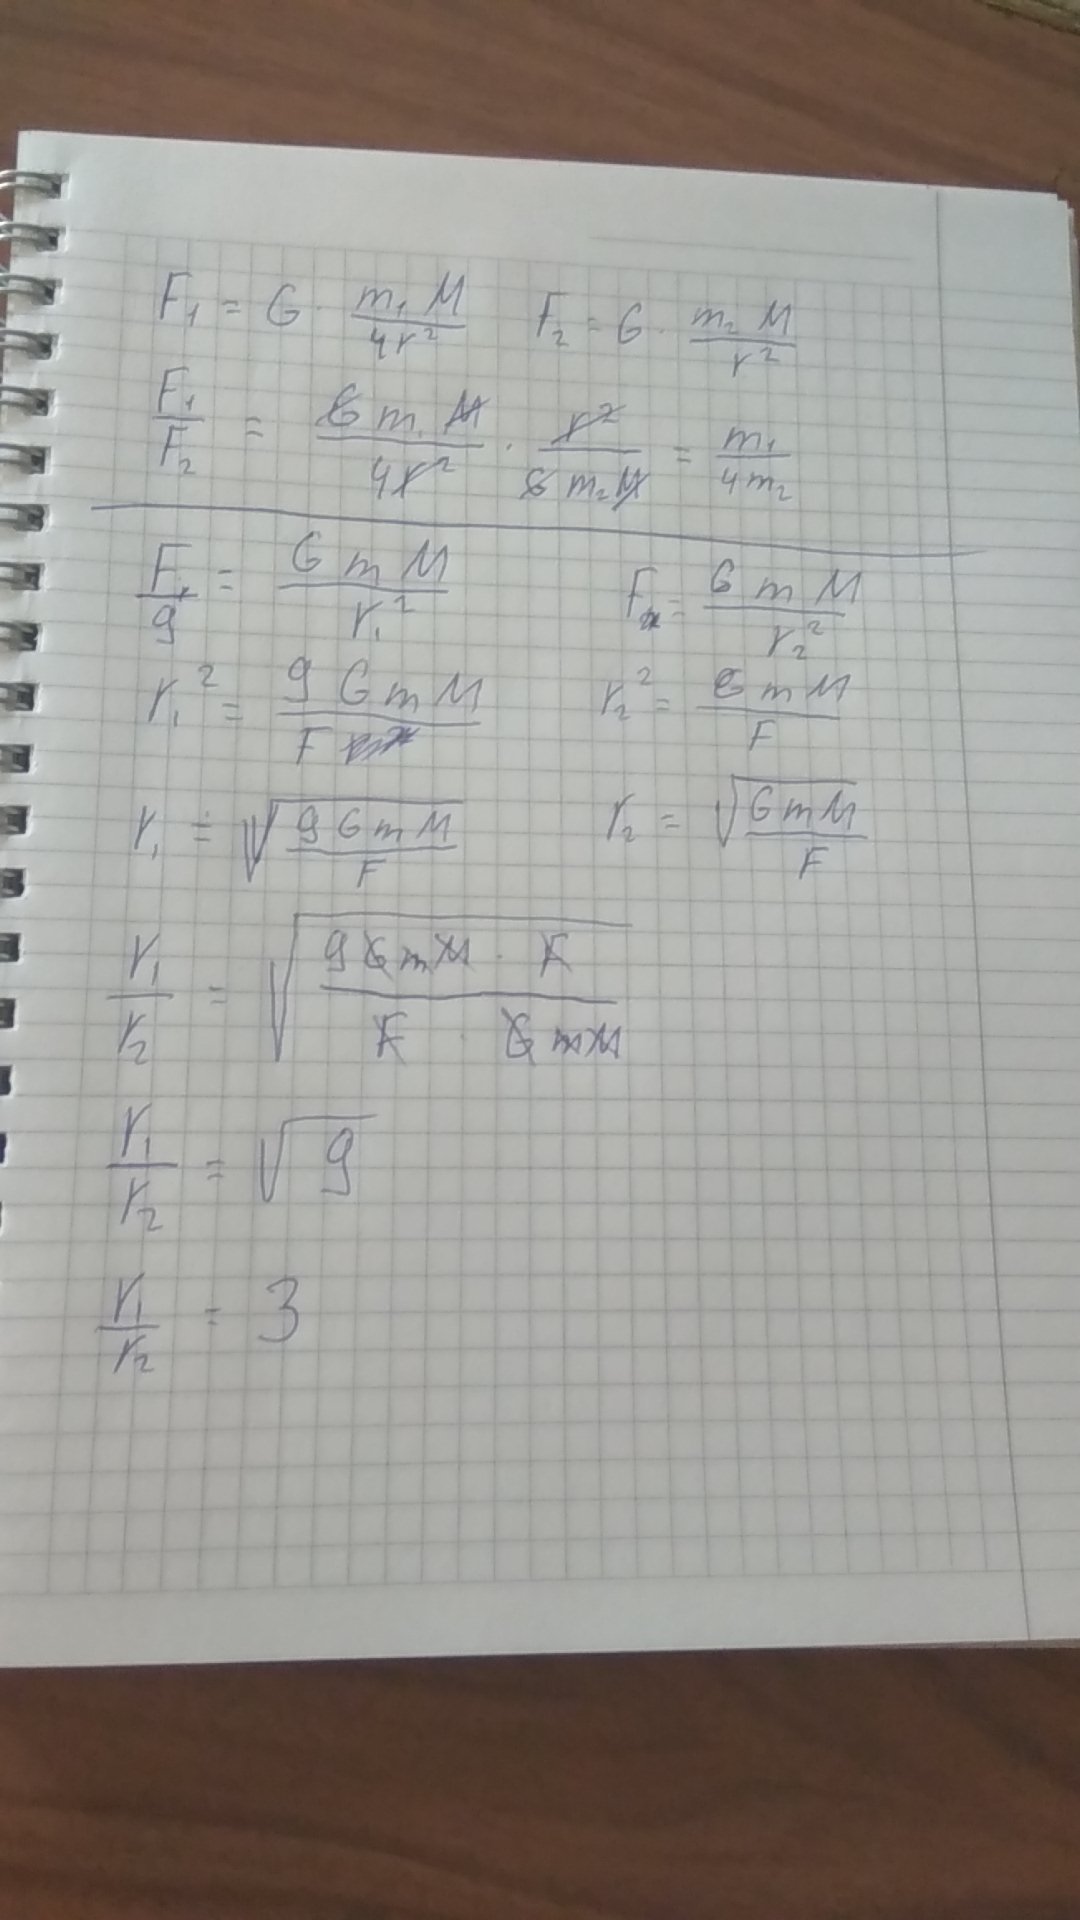 F₁ = G · m₁ M / 4r²   F₂ = G · m₂ M / r²
F₁ / F₂ = G m₁ M / 4r² · r² / G m₂ M = m₁ / 4m₂
F / 9 = G m M / r₁²   F = G m M / r₂²
r₁² = 9 G m M / F   r₂² = G m M / F
r₁ = √(9 G m M / F)   r₂ = √(G m M / F)
r₁ / r₂ = √(9 G m M · F / F · G m M)
r₁ / r₂ = √9
r₁ / r₂ = 3